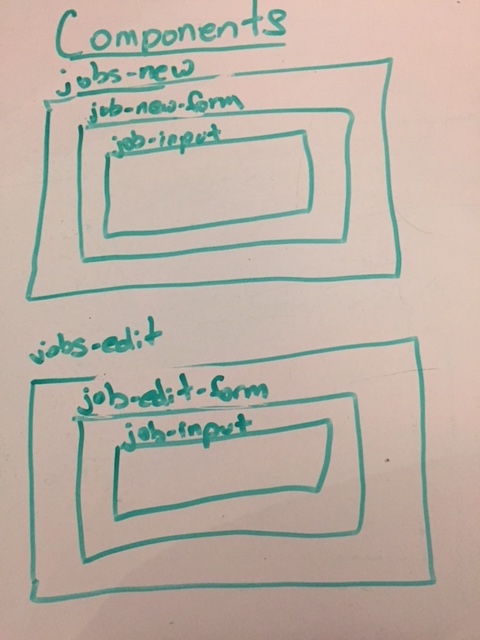 Components
jobs-new
job-new-form
job-input
jobs-edit
job-edit-form
job-input